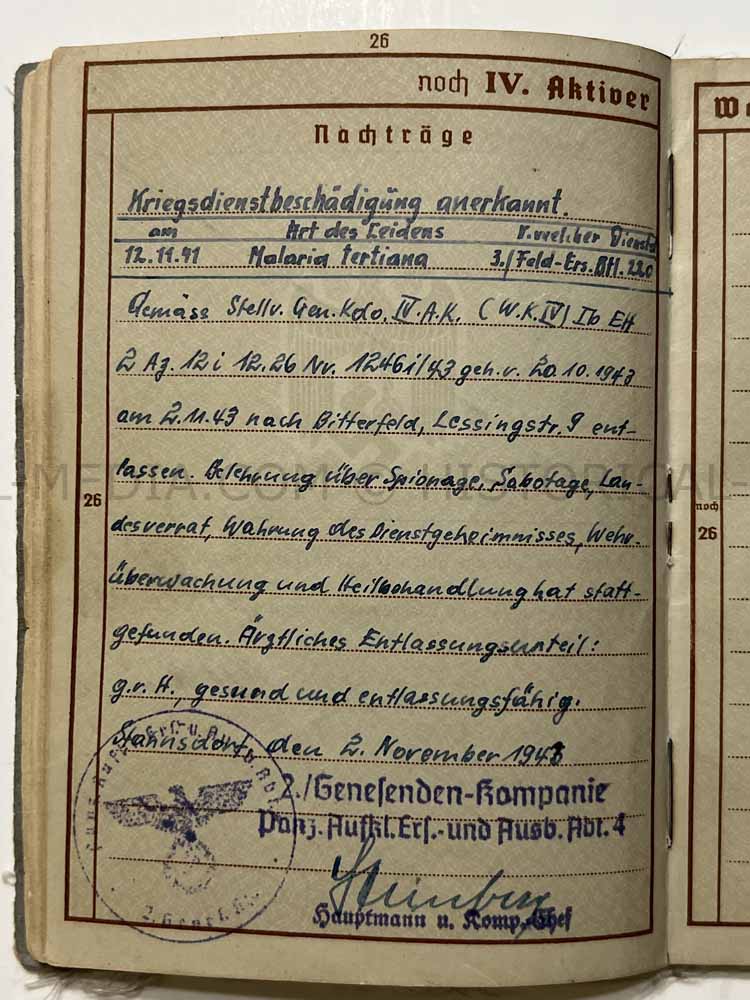 26
noch IV. Aktiver
Nachträge
Kriegsdienstbeschädigung anerkannt.
am Art des Leidens b. welcher Dienstst.
12.11.41 Malaria tertiana 3./Feld-Ers.Btl. 220
Gemäss Stellv. Gen. Kdo. IV. A.K. (W.K. IV) Ib
2 Az. 12 i 12.26 Nr. 1246i/43 geh. v. 20.10.1943
am 2.11.43 nach Bitterfeld, Lessingstr. 9 ent-
lassen. Belehrung über Spionage, Sabotage, Lan-
desverrat, Wahrung des Dienstgeheimnisses, Wehr-
überwachung und Heilbehandlung hat statt-
gefunden. Ärztliches Entlassungsurteil:
g.v.H., gesund und entlassungsfähig.
Stahnsdorf, den 2. November 1943
2./Genesenden-Kompanie
Panz. Aufkl. Ers.- und Ausb. Abt. 4
Hauptmann u. Komp. Chef
26
noch
26